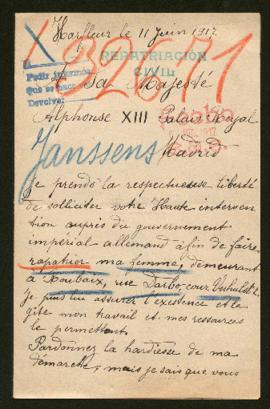 Harfleur le 11 Juin 1917.
182611
REPATRIACIÓN
CIVIL
Pedir informes
que se hace
Devolver.
Sa Majesté
Alphonse XIII Palais Royal
Janssens Madrid
Je prends la respectueuse liberté
de solliciter votre Haute interven
tion auprès du gouvernement
impérial allemand afin de faire
rapatrier ma femme, demeurant
à Roubaix, rue Darbo, cour
Je puis lui assurer l'existence et le
gîte mon travail et mes ressources
le permettent.
Pardonnez la hardiesse de ma
démarche, mais je sais que vous